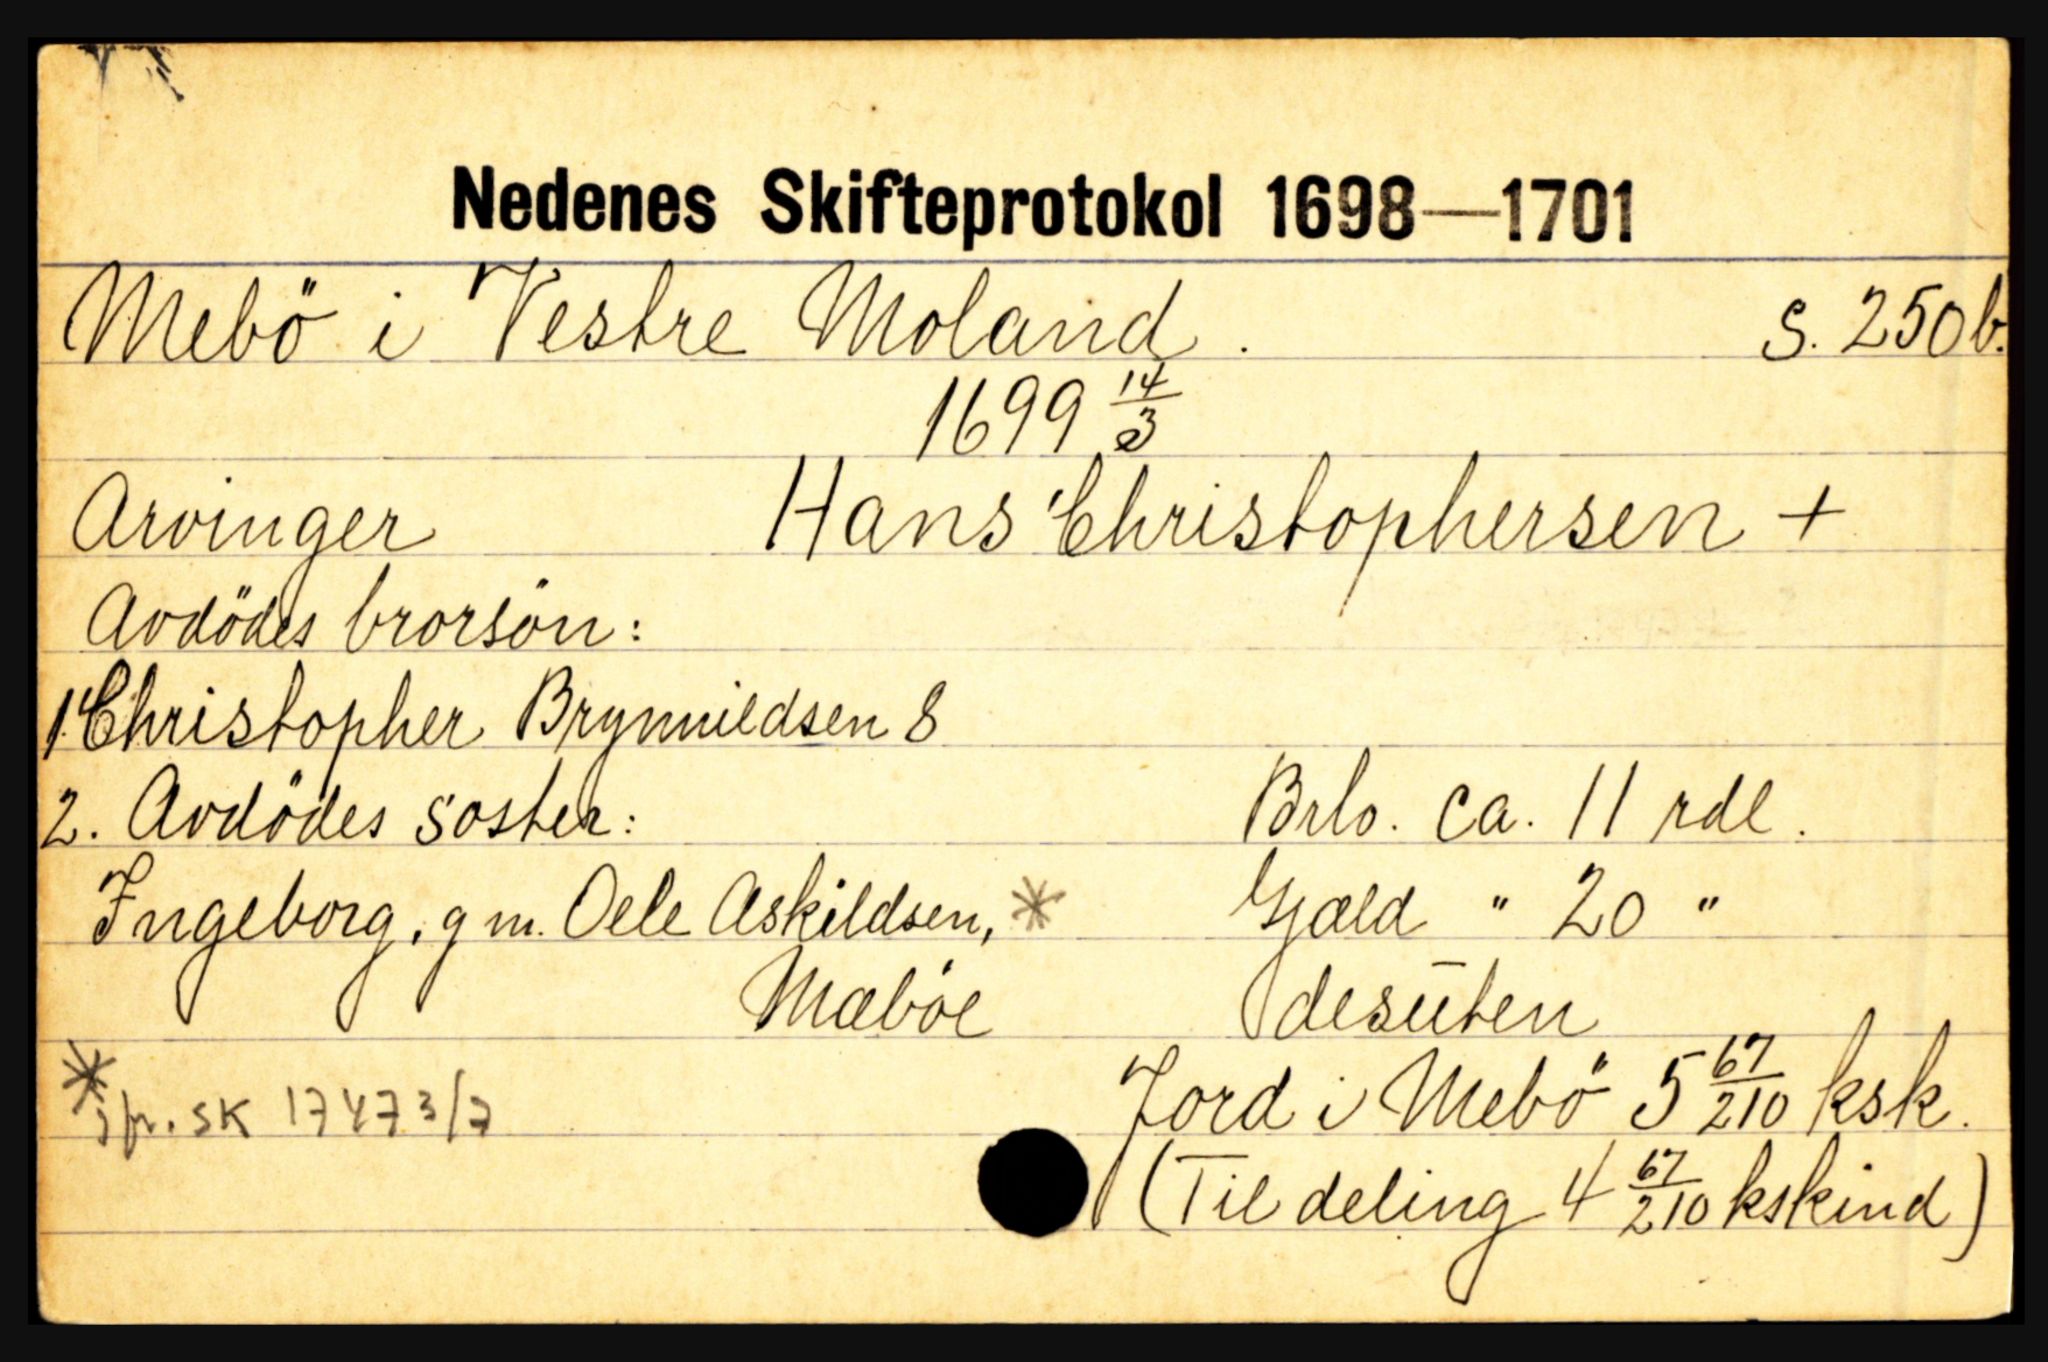 Nedenes Skifteprotokol 1698—1701
Mebö i Vestre Moland. S. 250b.
1699 14/3
Arvinger Hans Christophersen +
Avdödes brorsön:
1. Christopher Brynnildsen 8
2. Avdödes soster: Brlo. ca. 11 rdl.
Ingeborg, g m. Oele Askildsen, * Gjæld " 20 "
Mæbòe desūten
* jfr. SK 1747 3/7 Jord i Mebö 5 67/210 ksk.
(Til deling 4 67/210 kskind)